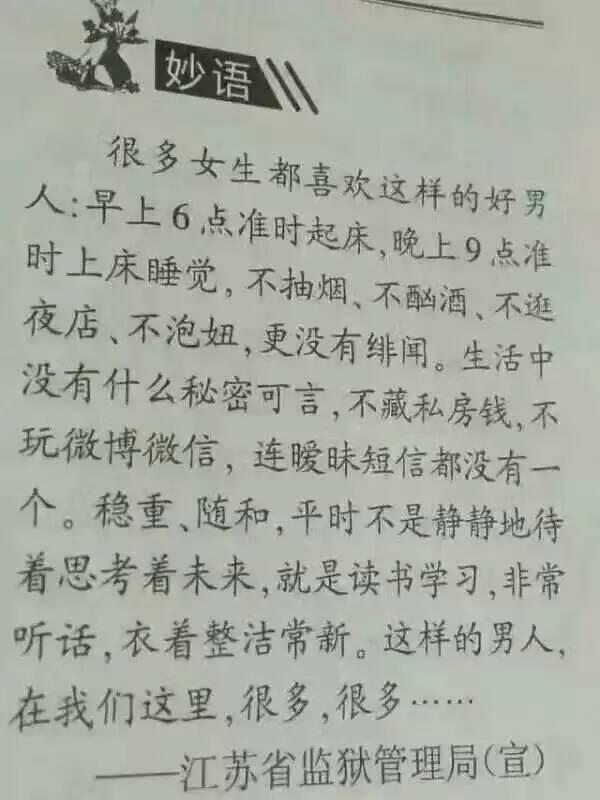 妙语
很多女生都喜欢这样的好男
人:早上6点准时起床,晚上9点准
时上床睡觉,不抽烟、不酗酒、不逛
夜店、不泡妞,更没有绯闻。生活中
没有什么秘密可言,不藏私房钱,不
玩微博微信,连暧昧短信都没有一
个。稳重、随和,平时不是静静地待
着思考着未来,就是读书学习,非常
听话,衣着整洁常新。这样的男人,
在我们这里,很多,很多……
——江苏省监狱管理局(宣)